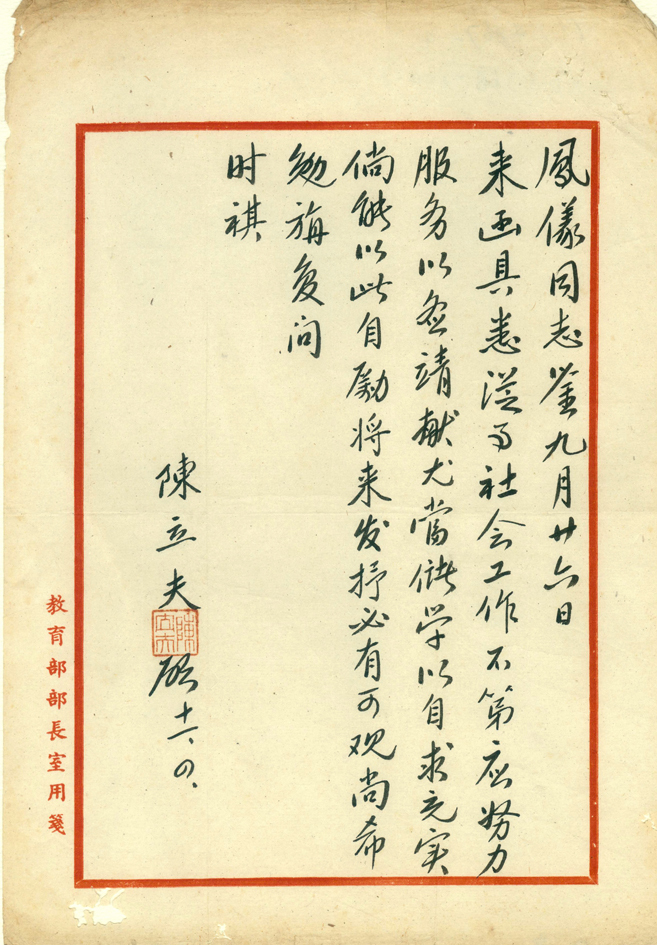 鳳儀同志鉴九月廿六日
来函具悉從事社会工作不第应努力
服务以盡靖献尤當储学以自求充实
倘能以此自勵将来发抒必有可观尚希
勉旃复问
时祺
陳立夫
陳立夫
启十一、四、
教育部部長室用箋